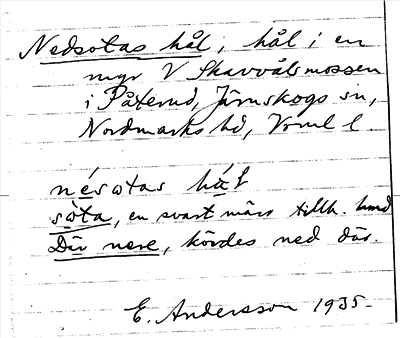 Nedsotas hål, hål i en
myr V Skavvålsmossen
i Påterud, Järnskogs sn,
Nordmarks hd, Vrml l
nésotas hál
sòta, en svart märr tillh.
Där nere, kördes ned där.
E. Andersson 1935